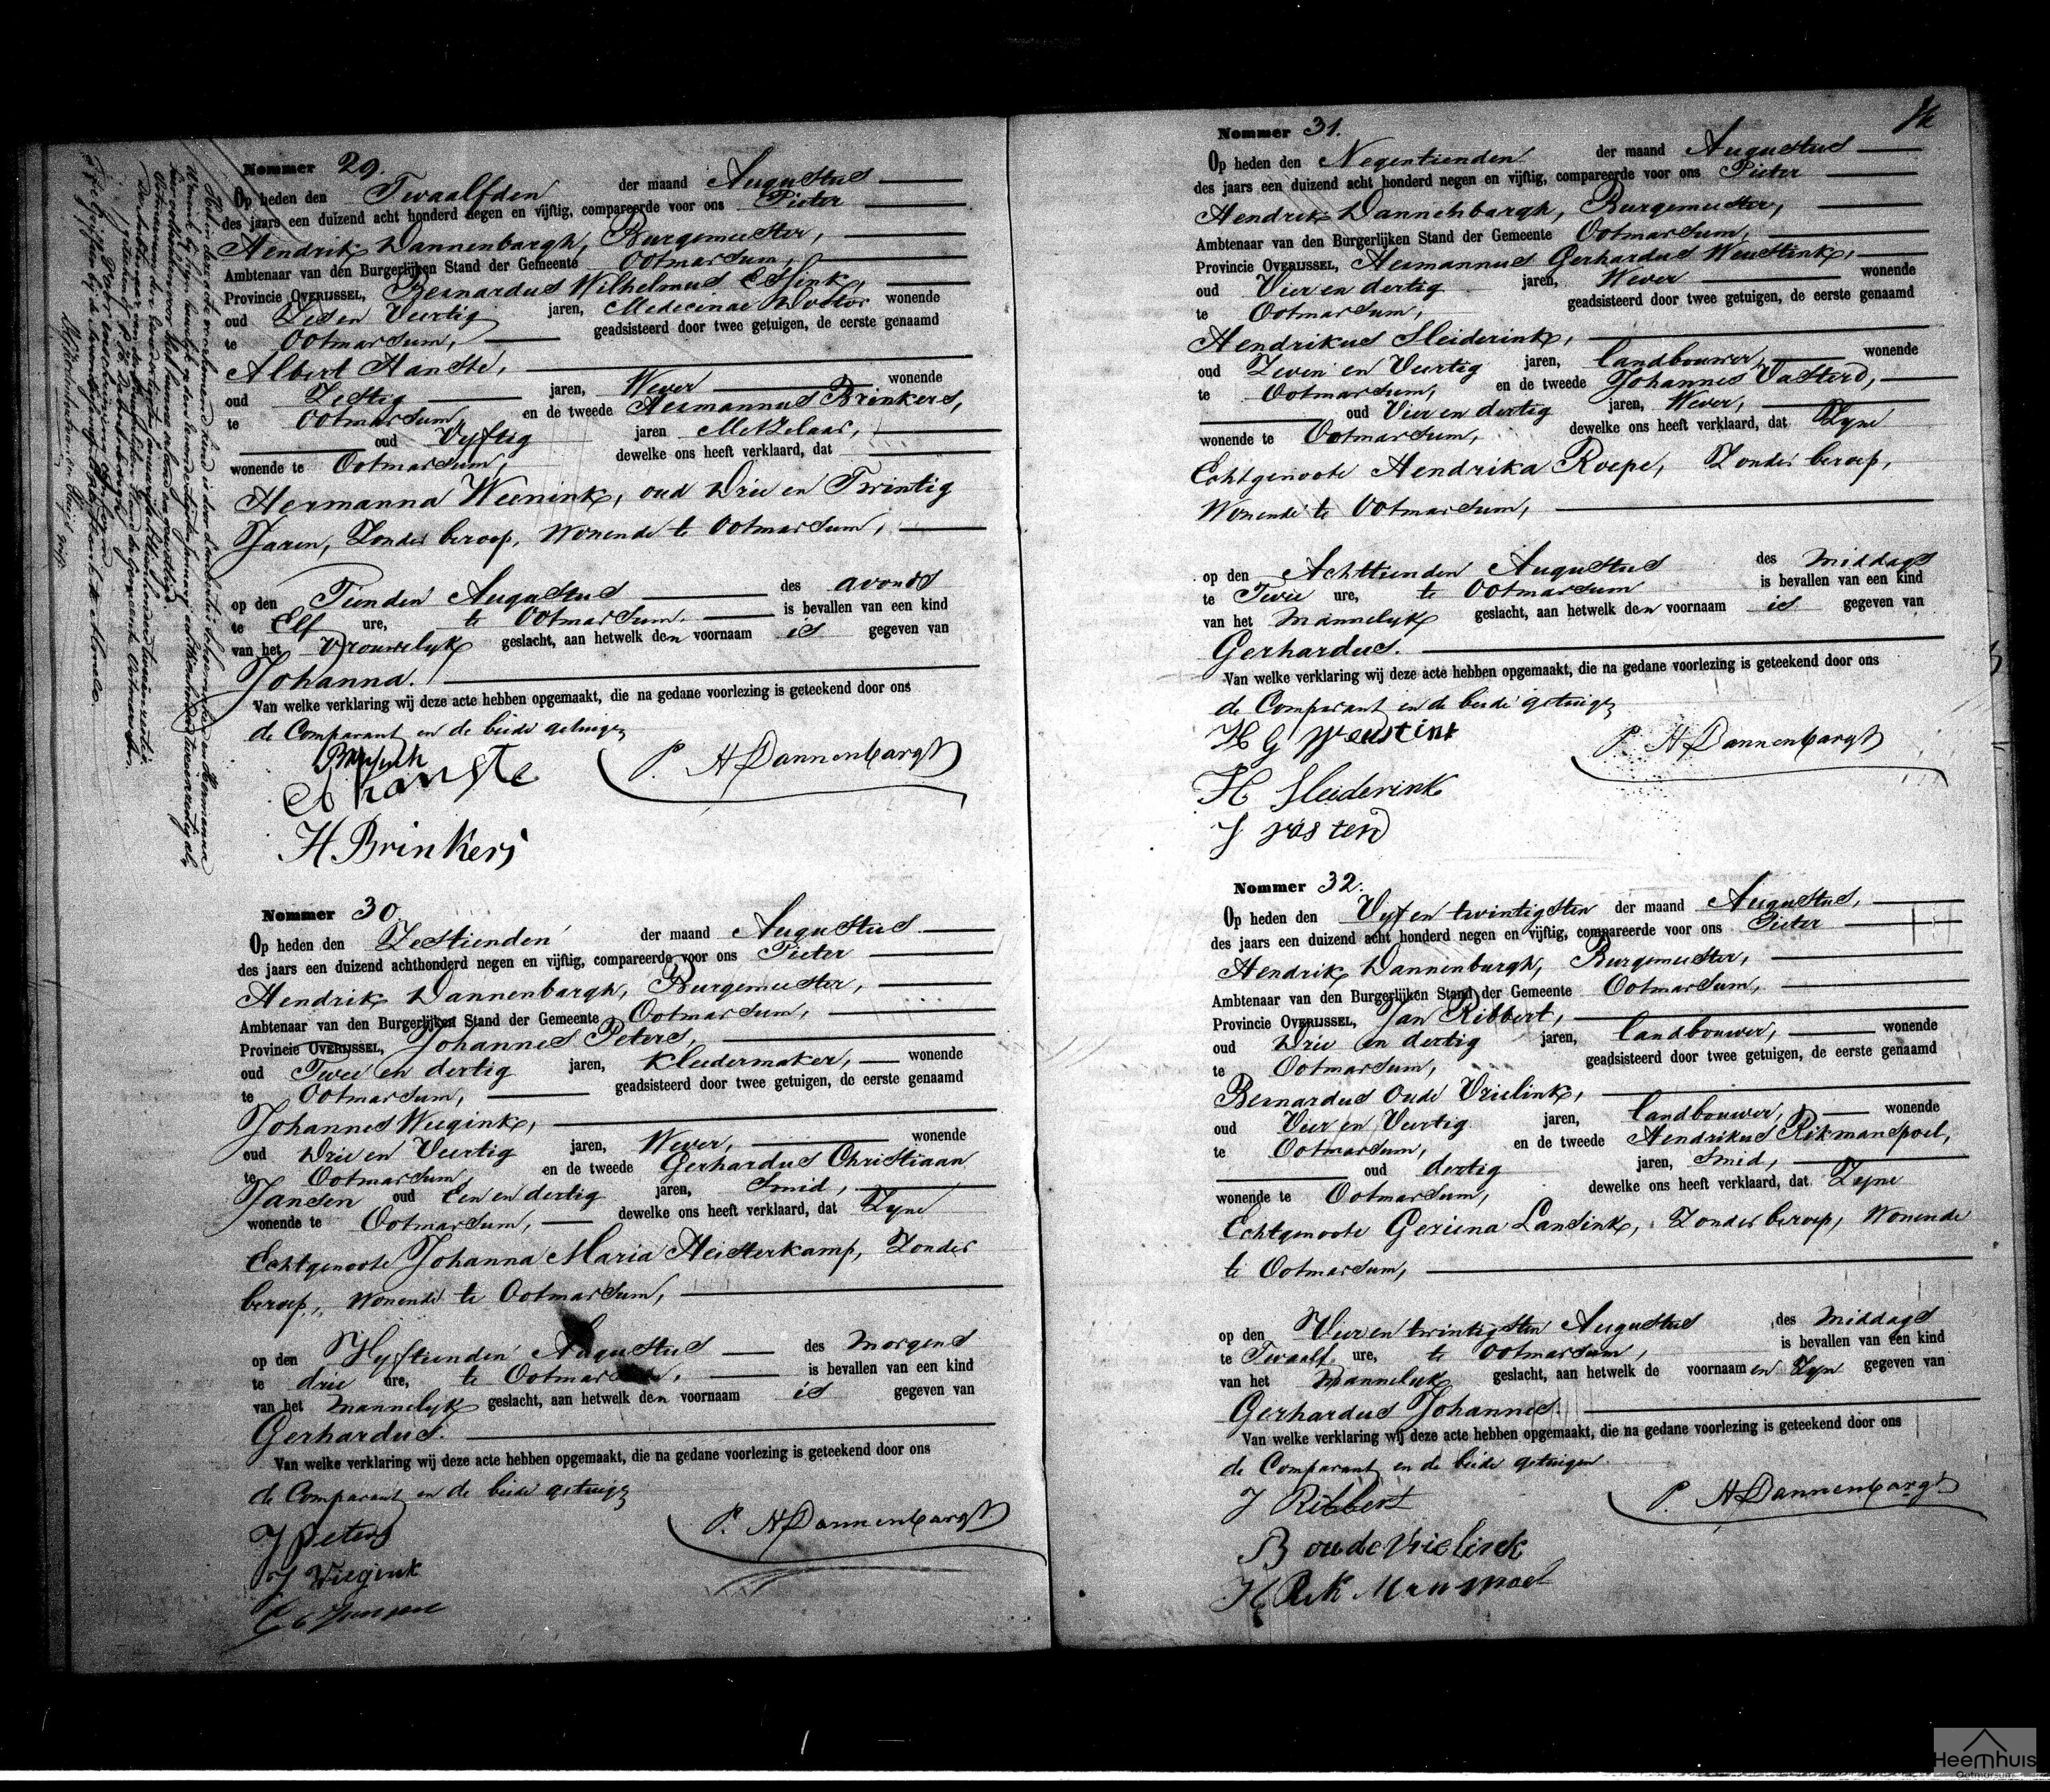 Nommer 29.
Op heden den Twaalfden der maand Augustus
des jaars een duizend acht honderd negen en vijftig, compareerde voor ons Pieter
Hendrik Dannenbargh, Burgemeester,
Ambtenaar van den Burgerlijken Stand der Gemeente Ootmarsum,
Provincie OVERIJSSEL, Bernardus Wilhelmus Essink,
oud Zes en Veertig jaren, Medecinae Doctor wonende
te Ootmarsum, geadsisteerd door twee getuigen, de eerste genaamd
Albert Hanste,
oud Zestig jaren, Wever wonende
te Ootmarsum, en de tweede Hermannus Brinkers,
oud Vyftig jaren Metzelaar,
wonende te Ootmarsum, dewelke ons heeft verklaard, dat
Hermanna Weenink, oud Drie en Twintig
Jaren, Zonder beroep, Wonende te Ootmarsum,
op den Tienden Augustus des avonds
te Elf ure, te Ootmarsum. is bevallen van een kind
van het Vrouwelyk geslacht, aan hetwelk den voornaam is gegeven van
Johanna.
Van welke verklaring wij deze acte hebben opgemaakt, die na gedane voorlezing is geteekend door ons
de Comparant en de beide getuigen
P. H Dannenbargh
A Hanste
H Brinkers
Nommer 30.
Op heden den Zestienden der maand Augustus
des jaars een duizend achthonderd negen en vijftig, compareerde voor ons Pieter
Hendrik Dannenbargh, Burgemeester,
Ambtenaar van den Burgerlijken Stand der Gemeente Ootmarsum,
Provincie OVERIJSSEL, Johannes Peters,
oud Twee en dertig jaren, Kleedermaker, wonende
te Ootmarsum, geadsisteerd door twee getuigen, de eerste genaamd
Johannes Weegink,
oud Drie en Veertig jaren, Wever, wonende
te Ootmarsum, en de tweede Gerhardus Christiaan
Jansen oud Een en dertig jaren, Smid,
wonende te Ootmarsum, dewelke ons heeft verklaard, dat Zyne
Echtgenoote Johanna Maria Heisterkamp, Zonder
beroep, Wonende te Ootmarsum,
op den Vyftienden Augustus des Morgens
te drie ure, te Ootmarsum, is bevallen van een kind
van het Mannelyk geslacht, aan hetwelk den voornaam is gegeven van
Gerhardus.
Van welke verklaring wij deze acte hebben opgemaakt, die na gedane voorlezing is geteekend door ons
de Comparant en de beide getuigen
J Peters
P. H Dannenbargh
J Wiegink
Nommer 31.
Op heden den Negentienden der maand Augustus
des jaars een duizend acht honderd negen en vijftig, compareerde voor ons Pieter
Hendrik Dannenbargh, Burgemeester,
Ambtenaar van den Burgerlijken Stand der Gemeente Ootmarsum,
Provincie OVERIJSSEL, Hermannus Gerhardus Weustink,
oud Vier en dertig jaren, Wever wonende
te Ootmarsum, geadsisteerd door twee getuigen, de eerste genaamd
Hendrikus Sleiderink,
oud Zeven en Veertig jaren, landbouwer, wonende
te Ootmarsum, en de tweede Johannes Vasterd,
oud Vier en dertig jaren, Wever,
wonende te Ootmarsum, dewelke ons heeft verklaard, dat Zyne
Echtgenoote Hendrika Roepe, Zonder beroep,
Wonende te Ootmarsum,
op den Achttienden Augustus des Middags
te Twee ure, te Ootmarsum is bevallen van een kind
van het Mannelyk geslacht, aan hetwelk den voornaam is gegeven van
Gerhardus.
Van welke verklaring wij deze acte hebben opgemaakt, die na gedane voorlezing is geteekend door ons
de Comparant en de beide getuigen
H G Weustink
P. H Dannenbargh
H Sleiderink
Nommer 32.
Op heden den Vyf en twintigsten der maand Augustus,
des jaars een duizend acht honderd negen en vijftig, compareerde voor ons Pieter
Hendrik Dannenbargh, Burgemeester,
Ambtenaar van den Burgerlijken Stand der Gemeente Ootmarsum,
Provincie OVERIJSSEL, Jan Ribbert,
oud Drie en dertig jaren, landbouwer, wonende
te Ootmarsum, geadsisteerd door twee getuigen, de eerste genaamd
Bernardus Oude Vrielink,
oud Vier en Veertig jaren, landbouwer, wonende
te Ootmarsum, en de tweede Hendrikus Rikmanspoel,
oud dertig jaren, Smid,
wonende te Ootmarsum, dewelke ons heeft verklaard, dat Zyne
Echtgenoote Geziena Lansink, Zonder beroep, Wonende
te Ootmarsum,
op den Vier en twintigsten Augustus des Middags
te Twaalf ure, te Ootmarsum, is bevallen van een kind
van het Mannelyk geslacht, aan hetwelk de voornaamen Zyn gegeven van
Gerhardus Johannes.
Van welke verklaring wij deze acte hebben opgemaakt, die na gedane voorlezing is geteekend door ons
de Comparant en de beide getuigen
J Ribbert
P. H Dannenbargh
B oude Vrielinck
H Rikmanspoel
Heemhuis
Ootmarsum